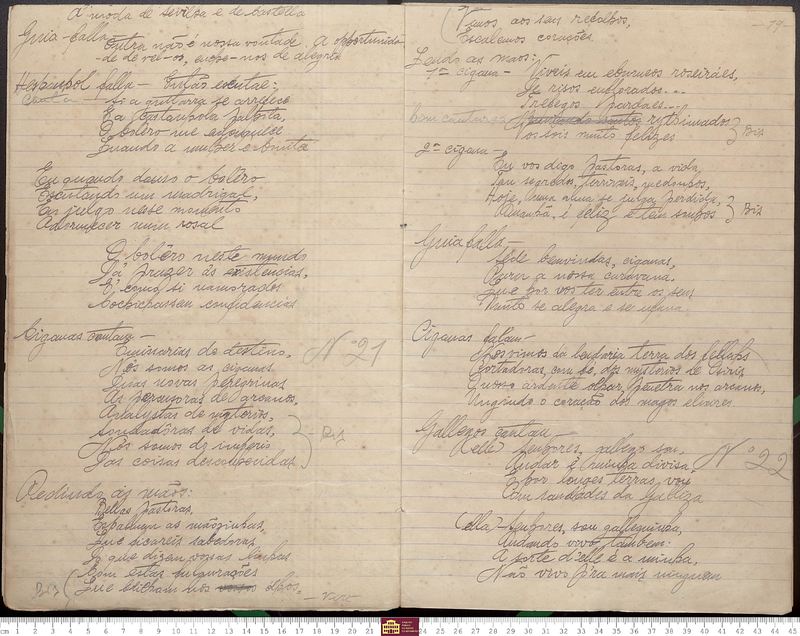 Á moda de Sevilha e de Castella
Guia - falla - Outra não é nossa vontade. A opportunida-
de de vel-os, enche-nos de alegria
Hespanhol falla - Então escutae:
Canta
Si a guitarra se
E a castanhola palpita,
O bolêro me enlouquece
Quando a mulher é bonita
Eu quando danso o bolêro
Escutando um madrigal,
Eu julgo nesse momento
Adormecer num rosal
O bolêro neste mundo
Dá prazer ás existencias,
É como si namorados
Cochichassem confidencias
Ciganas cantam -
Emissarias do destino,
Nós somos as ciganas
Nº 21
peregrinas
As de arcanos,
Analystas de mysterios,
de vidas,
Nós somos do imperio
Das coisas desconhecidas
- Bis
Pedindo as mãos:
Bellas pastoras,
Espalmem as mãozinhas,
Que ficareis sabedoras
O que dizem vossas linhas
Com estas
Que nos olhos.
Bis
- Vire
- 19 -
Vamos, aos seus recolhos,
Escalemos corações
Lendo as mãos:
1ª cigana - Viveis em eburneos roseiráes,
De risos enflorados...
Trêfegos pardaes...
rythimados
Vós sois muito felizes
Bis
2ª cigana -
Eu vos digo pastoras, a vida,
Tem segredos, terriveis, medonhos,
Hoje, uma alma se julga perdida,
Amanhã, é feliz e tem sonhos
Bis
Guia falla -
Sêde bemvindas, ciganas,
a nossa caravana.
Que por vos ter entre os seus
Muito se alegra e se ufana
Ciganas fallam -
Nós vimos da lendaria terra dos fellahs
Portadoras, com fé, dos mysterios de Osiris
O nosso ardente olhar, penetra nos arcanos,
Ungindo o coração dos magos
Gallegos cantam
Elle - Senhores, gallego sou,
Nº 22
Andar é minha divisa,
E por longes terras, vou
Com saudades da Galliza
Ella - Senhores, sou galleguinha,
Andando vivo, tambem:
A sorte d'elle é a minha,
Não vivo p'ra mais ninguem